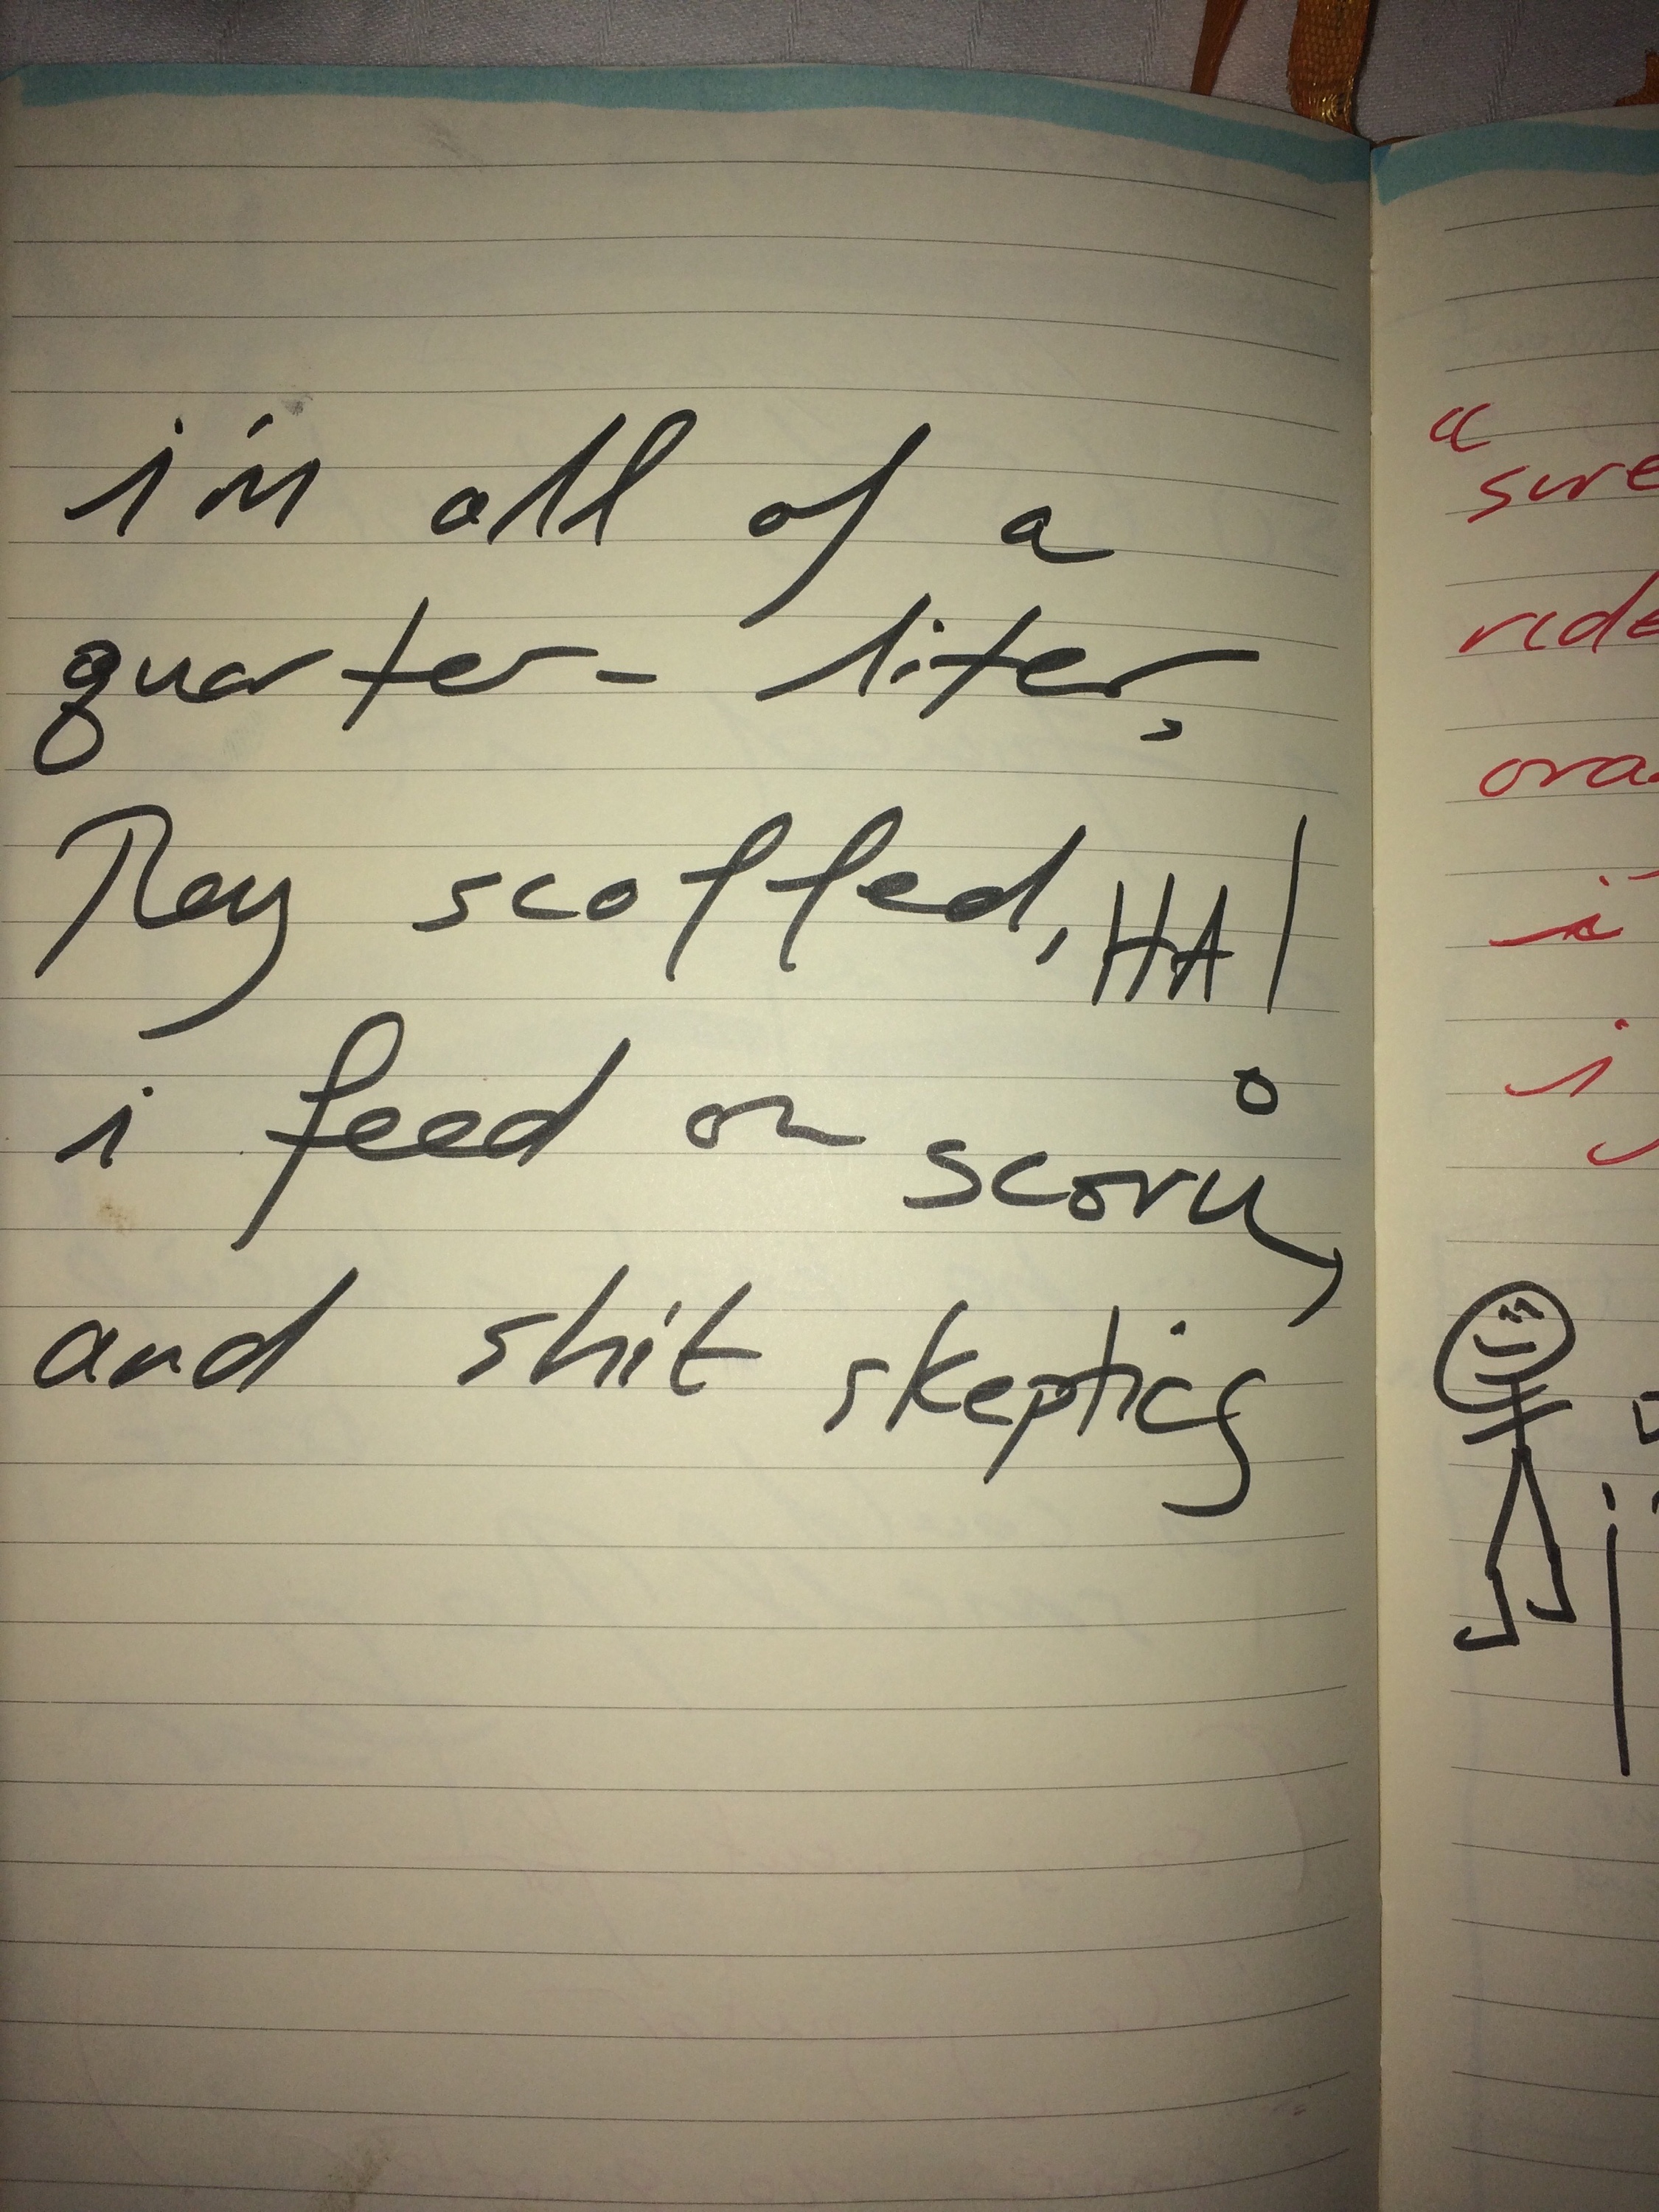 i'm all of a
quarter-liter,
They scoffed, HA!
i feed on scorn,
and shit skeptics
“sure
ride